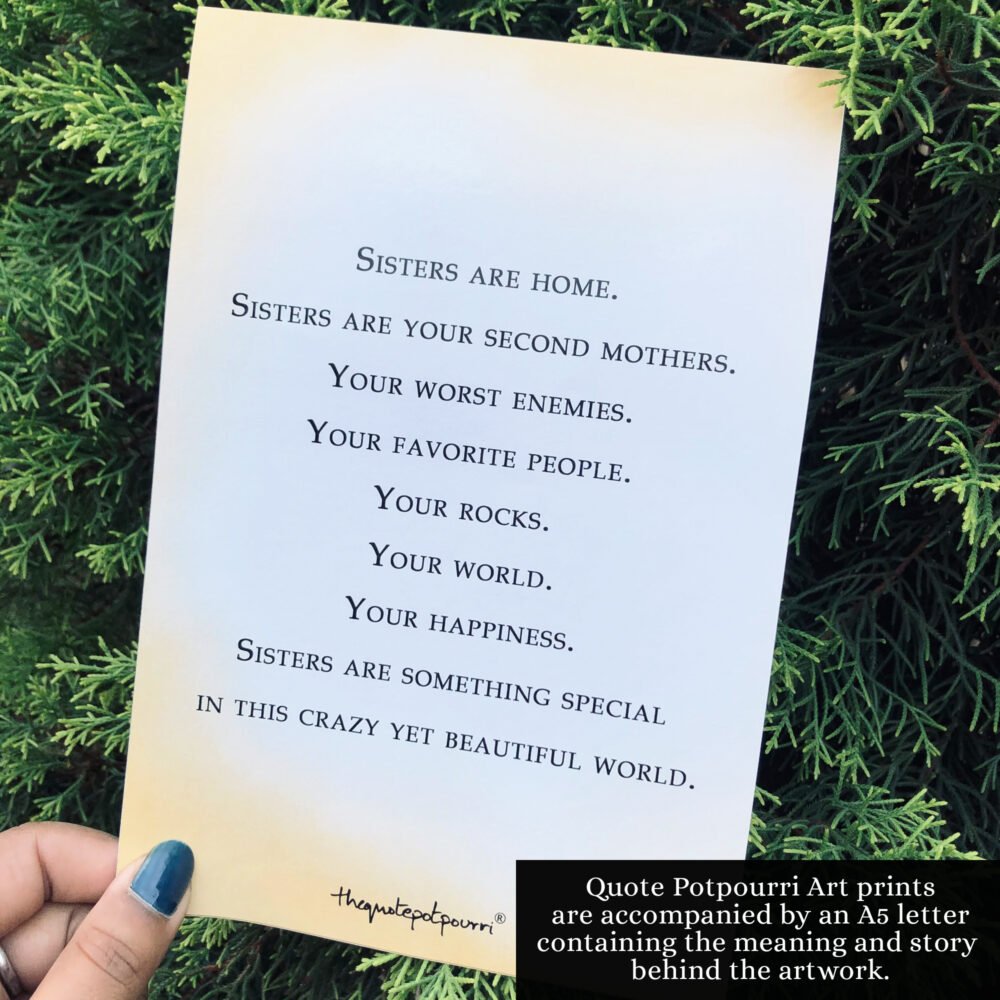 Sisters are home.
Sisters are your second mothers.
Your worst enemies.
Your favorite people.
Your rocks.
Your world.
Your happiness.
Sisters are something special
in this crazy yet beautiful world.
thequotepotpourri®
Quote Potpourri Art prints
are accompanied by an A5 letter
containing the meaning and story
behind the artwork.